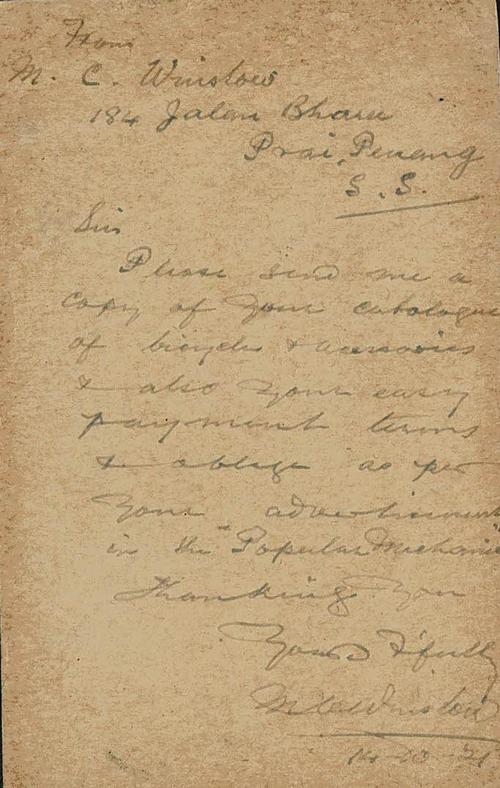 From
M. C. Winslow
184 Jalan Bharu
Prai, Penang
S. S.
Sir
Please send me a
copy of your catalogue
of bicycles & accessories
& also your easy
payment terms
& oblige as per
your advertisement
in the "Popular Mechanic
Thanking you
Yours f'fully
M C Winslow